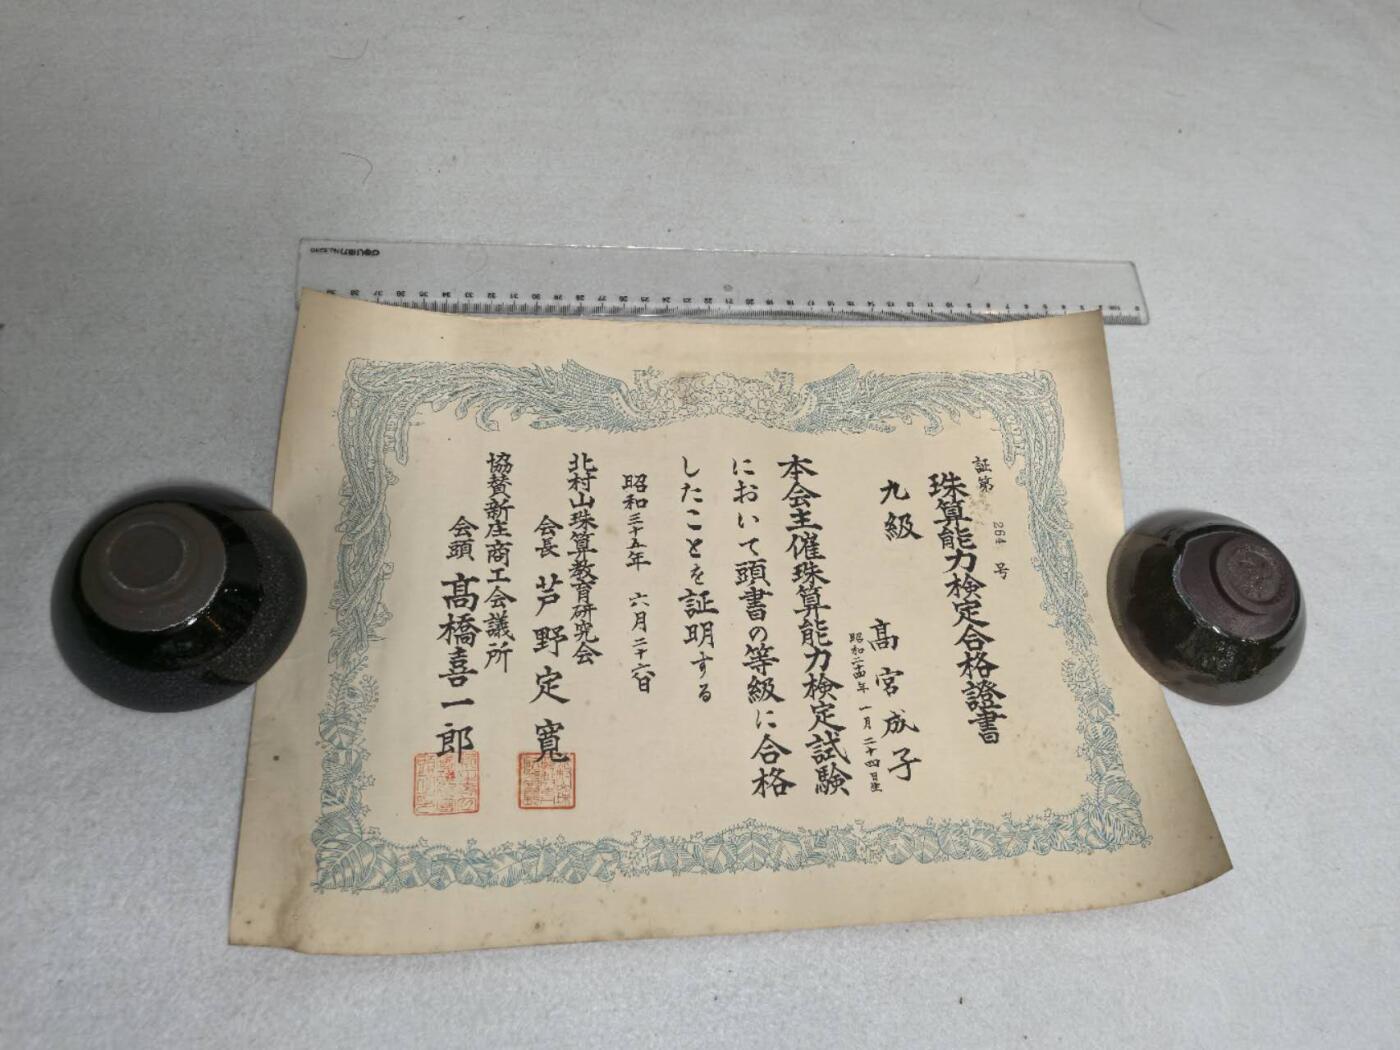 証第 264 号
珠算能力検定合格證書
九級
髙宮成子
昭和二十四年一月二十四日生
本会主催珠算能力検定試験
において頭書の等級に合格
したことを証明する
昭和三十五年 六月二十六日
北村山珠算教育研究会
会長 芦野定寛
協賛新庄商工会議所
会頭 髙橋喜一郎